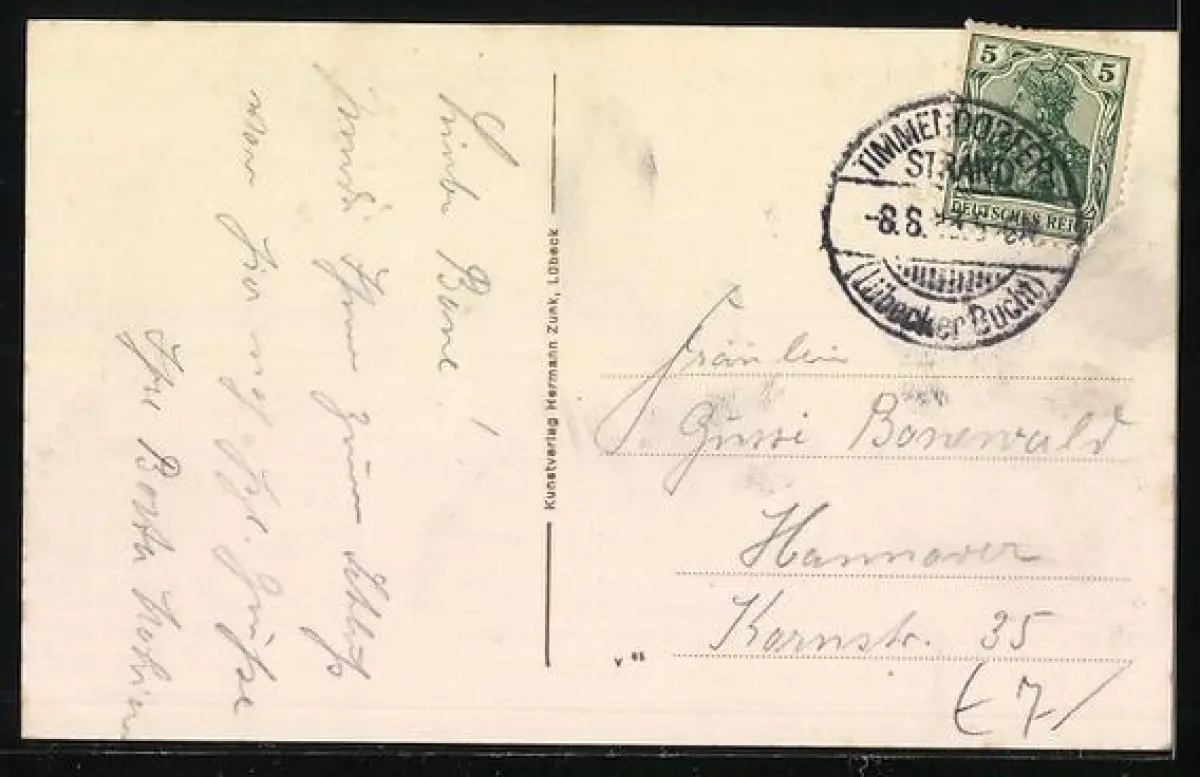 Liebe Bone!
sende Ihnen zum Schluß
von hier noch hzl. Grüße
Ihre
Kunstverlag Hermann Zunk, Lübeck
5 5
DEUTSCHES REICH
TIMMENDORFER
STRAND
-8.8.
(Lübecker Bucht)
Fräulein
Gussi Bonewald
Hannover
Kornstr. 35
V 65